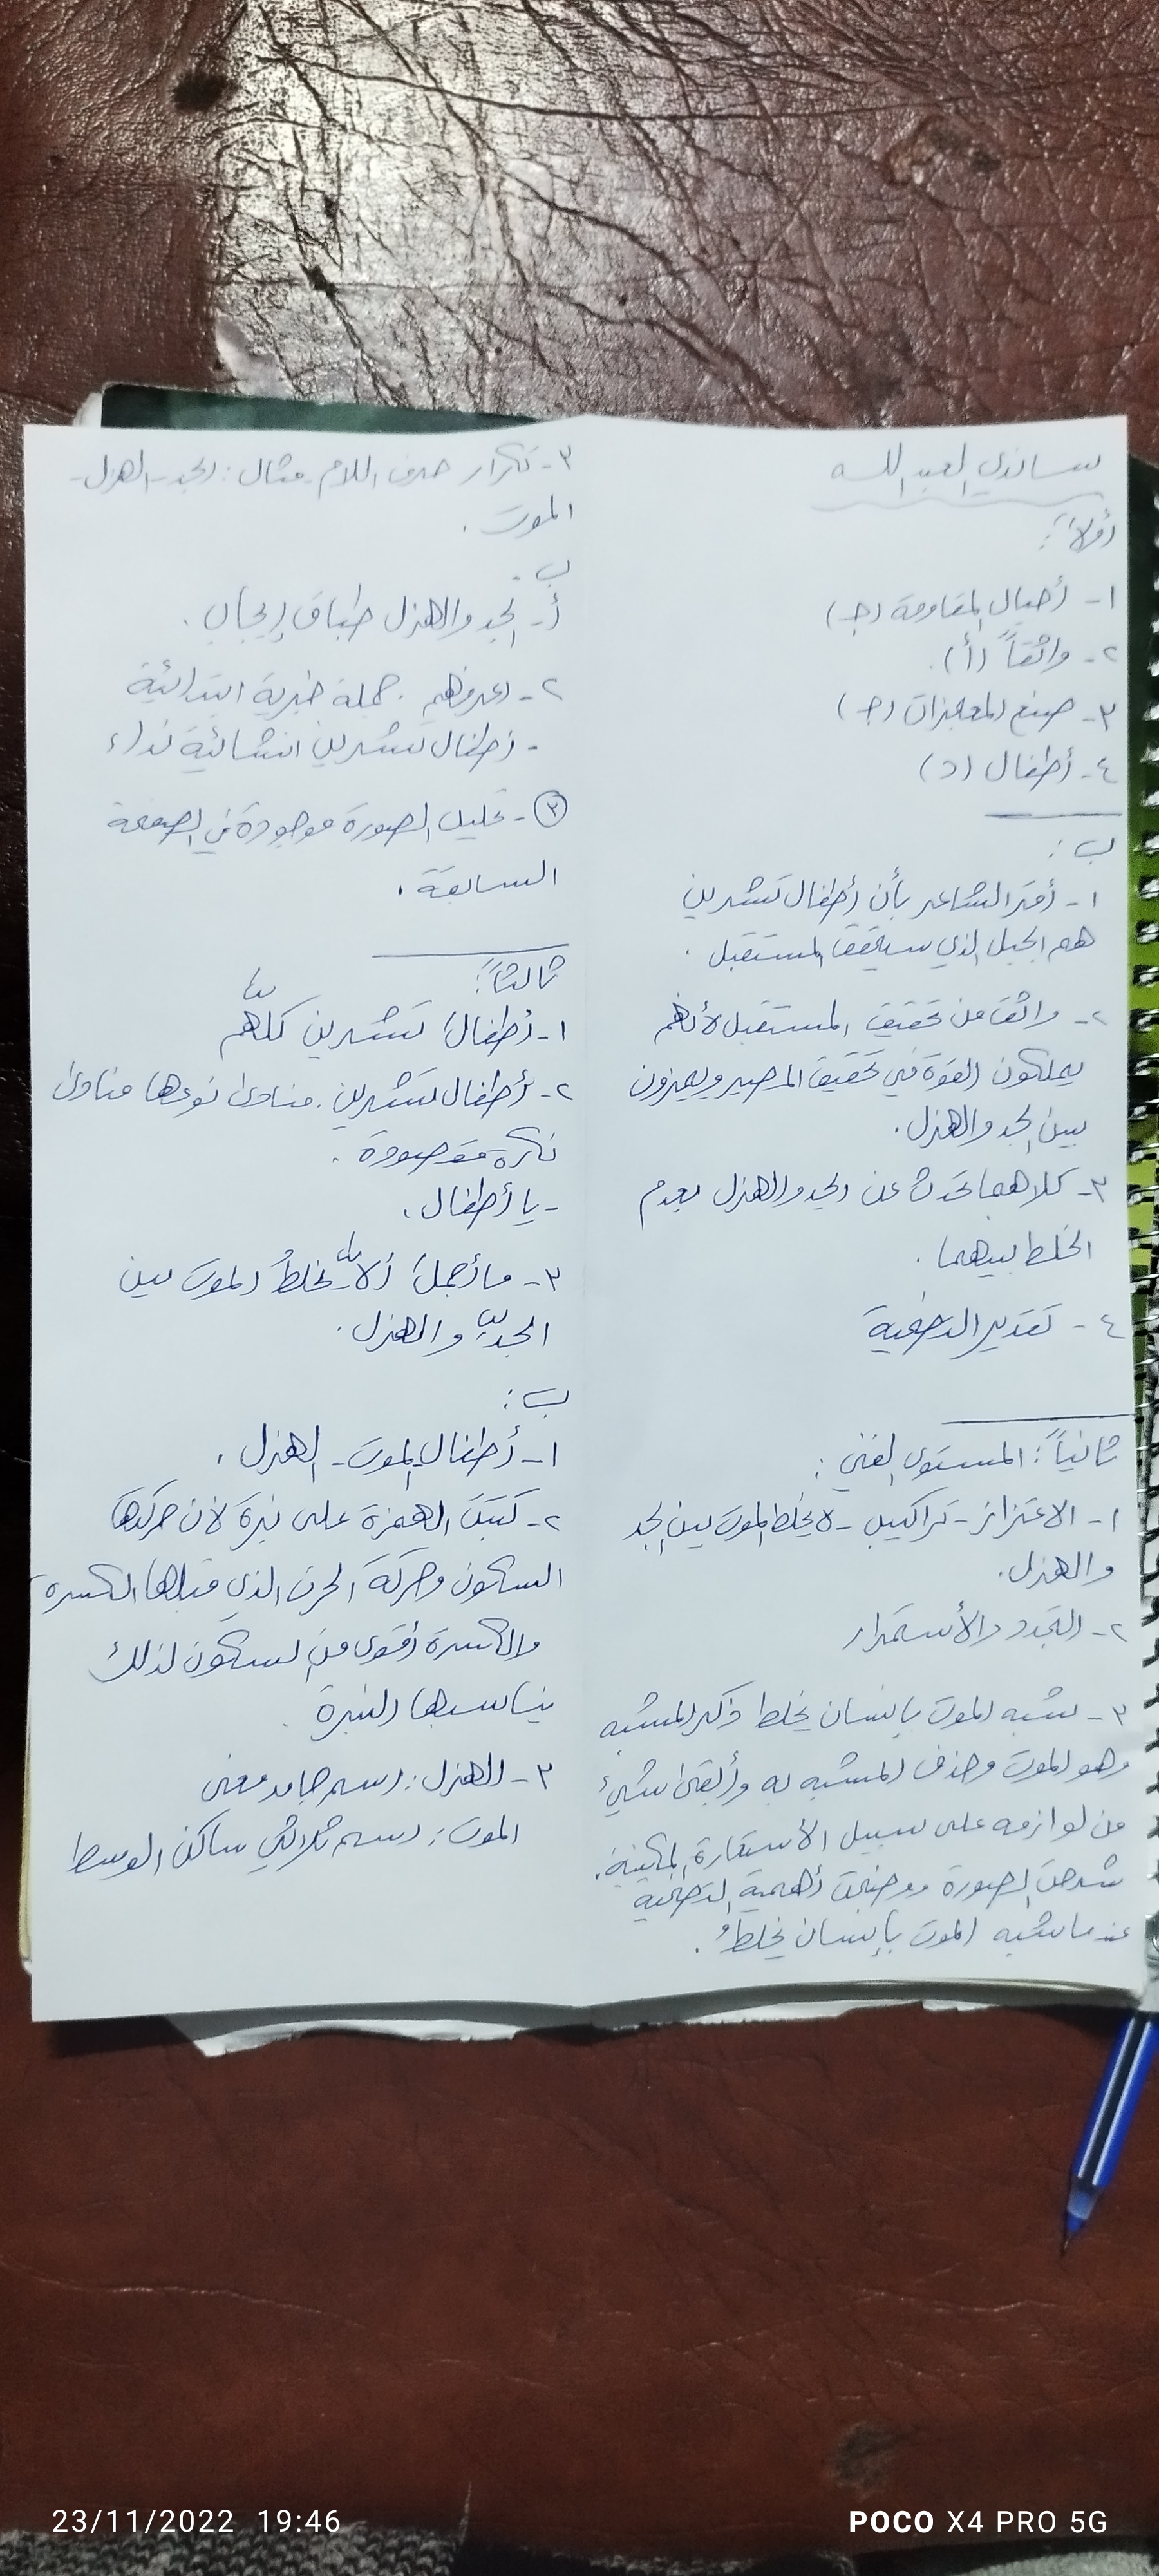 ساندي العبد الله
أولاً:
١- أجيال المقاومة (جـ)
٢- واثقاً (أ).
٣- صنع المعجزات (جـ)
٤- أطفال (د)
ب:
١- أقرَ الشاعر بأن أطفال تشرين
هم الجيل الذي سيحقق المستقبل.
٢- واثق من تحقيق المستقبل لأنهم
يملكون القوة في تحقيق المصير ويميزون
بين الجد والهزل.
٣- كلاهما تحدث عن الجد والهزل بعدم
الخلط بينهما.
٤- تقدير التضحية
ثانياً: المستوى الفني:
١- الاعتزاز - تراكيب - لا يخلط الموت بين الجد
والهزل.
٢- التجدد والأستمرار
٣- شبه الموت بإنسان يخلط ذكر المشبه
وهو الموت وحذف المشبه به وأبقى شيء
من لوازمه على سبيل الأستعارة المكنية.
شرحت الصورة ووضحت أهمية التضحية
عندما شبه الموت بإنسان يخلطُ.
٣- تكرار حرف اللام مثال: الجد - الهزل -
الموت.
ب.
أ- الجد والهزل طباق إيجاب.
٢- اعرفهم. جملة خبرية ابتدائية
- أطفال تشرين انشائية نداء
٣- تحليل الصورة موجودة في الصفحة
السابقة.
ثالثاً:
١- أطفالَ تشرين كلّهم
٢- أطفال تشرين. منادى نوعها منادى
نكرة مقصودة.
- يا أطفال.
٣- ما أجملَ ألّا يخلطُ الموت بين
الجدِّ والهزل.
ب:
١- أطفال - الموت - الهزل.
٢- كتبت الهمزة على نبرة لأن حركتها
السكون وحركة الحرف الذي قبلها الكسرة
والكسرة أقوى من السكون لذلك
يناسبها النبرة.
٣- الهزل: اسم جامد معنى
الموت: اسم ثلاثي ساكن الوسط
23/11/2022 19:46
POCO X4 PRO 5G